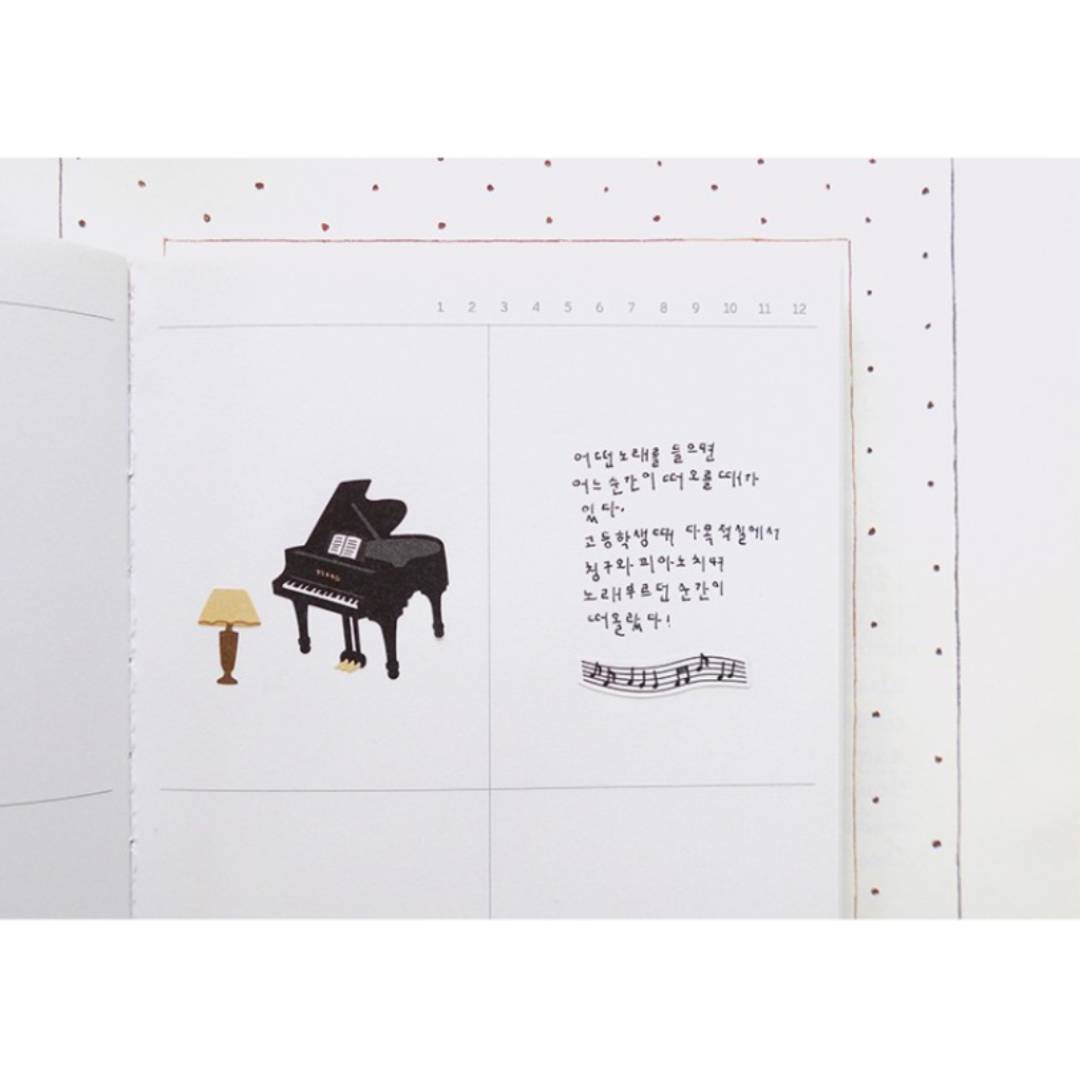 1 2 3 4 5 6 7 8 9 10 11 12
PIANO
어떤 노래를 들으면
어느 순간이 떠오를 때가
있다.
고등학생때 다목적실에서
친구와 피아노치며
노래부르던 순간이
떠올랐다!